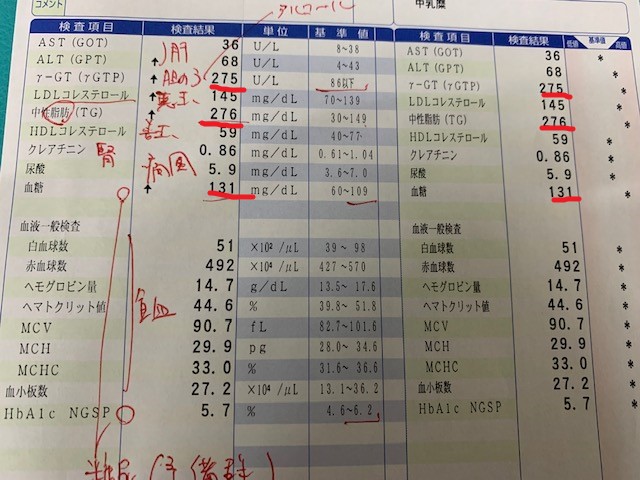 コメント 中乳糜
アルコール
検査項目 検査結果 単位 基準値 検査結果 低値 基準値 高値
AST (GOT) 肝 36 U/L 8~38 36 *
ALT (GPT) ↑ 68 U/L 4~43 68 *
γ-GT (γGTP) ↑ 胆のう 275 U/L 86以下 275 *
LDLコレステロール ↑ 悪玉 145 mg/dL 70~139 145 *
中性脂肪 (TG) ↑ 276 mg/dL 30~149 276 *
HDLコレステロール 善玉 59 mg/dL 40~77 59 *
クレアチニン 腎 0.86 mg/dL 0.61~1.04 0.86 *
尿酸 痛風 5.9 mg/dL 3.6~7.0 5.9 *
血糖 ↑ 131 mg/dL 60~109 131 *
血液一般検査 血液一般検査
白血球数 51 ×10² /μL 39~ 98 白血球数 51 *
赤血球数 492 ×10⁴ /μL 427~570 赤血球数 492 *
ヘモグロビン量 14.7 g/dL 13.5~ 17.6 ヘモグロビン量 14.7 *
ヘマトクリット値 貧血 44.6 % 39.8~51.8 ヘマトクリット値 44.6 *
MCV 90.7 fL 82.7~101.6 MCV 90.7 *
MCH 29.9 pg 28.0~ 34.6 MCH 29.9 *
MCHC 33.0 % 31.6~ 36.6 MCHC 33.0 *
血小板数 27.2 ×10⁴ /μL 13.1~36.2 血小板数 27.2 *
HbA1c NGSP 5.7 % 4.6~6.2 HbA1c NGSP 5.7 *
糖尿 (予備群)